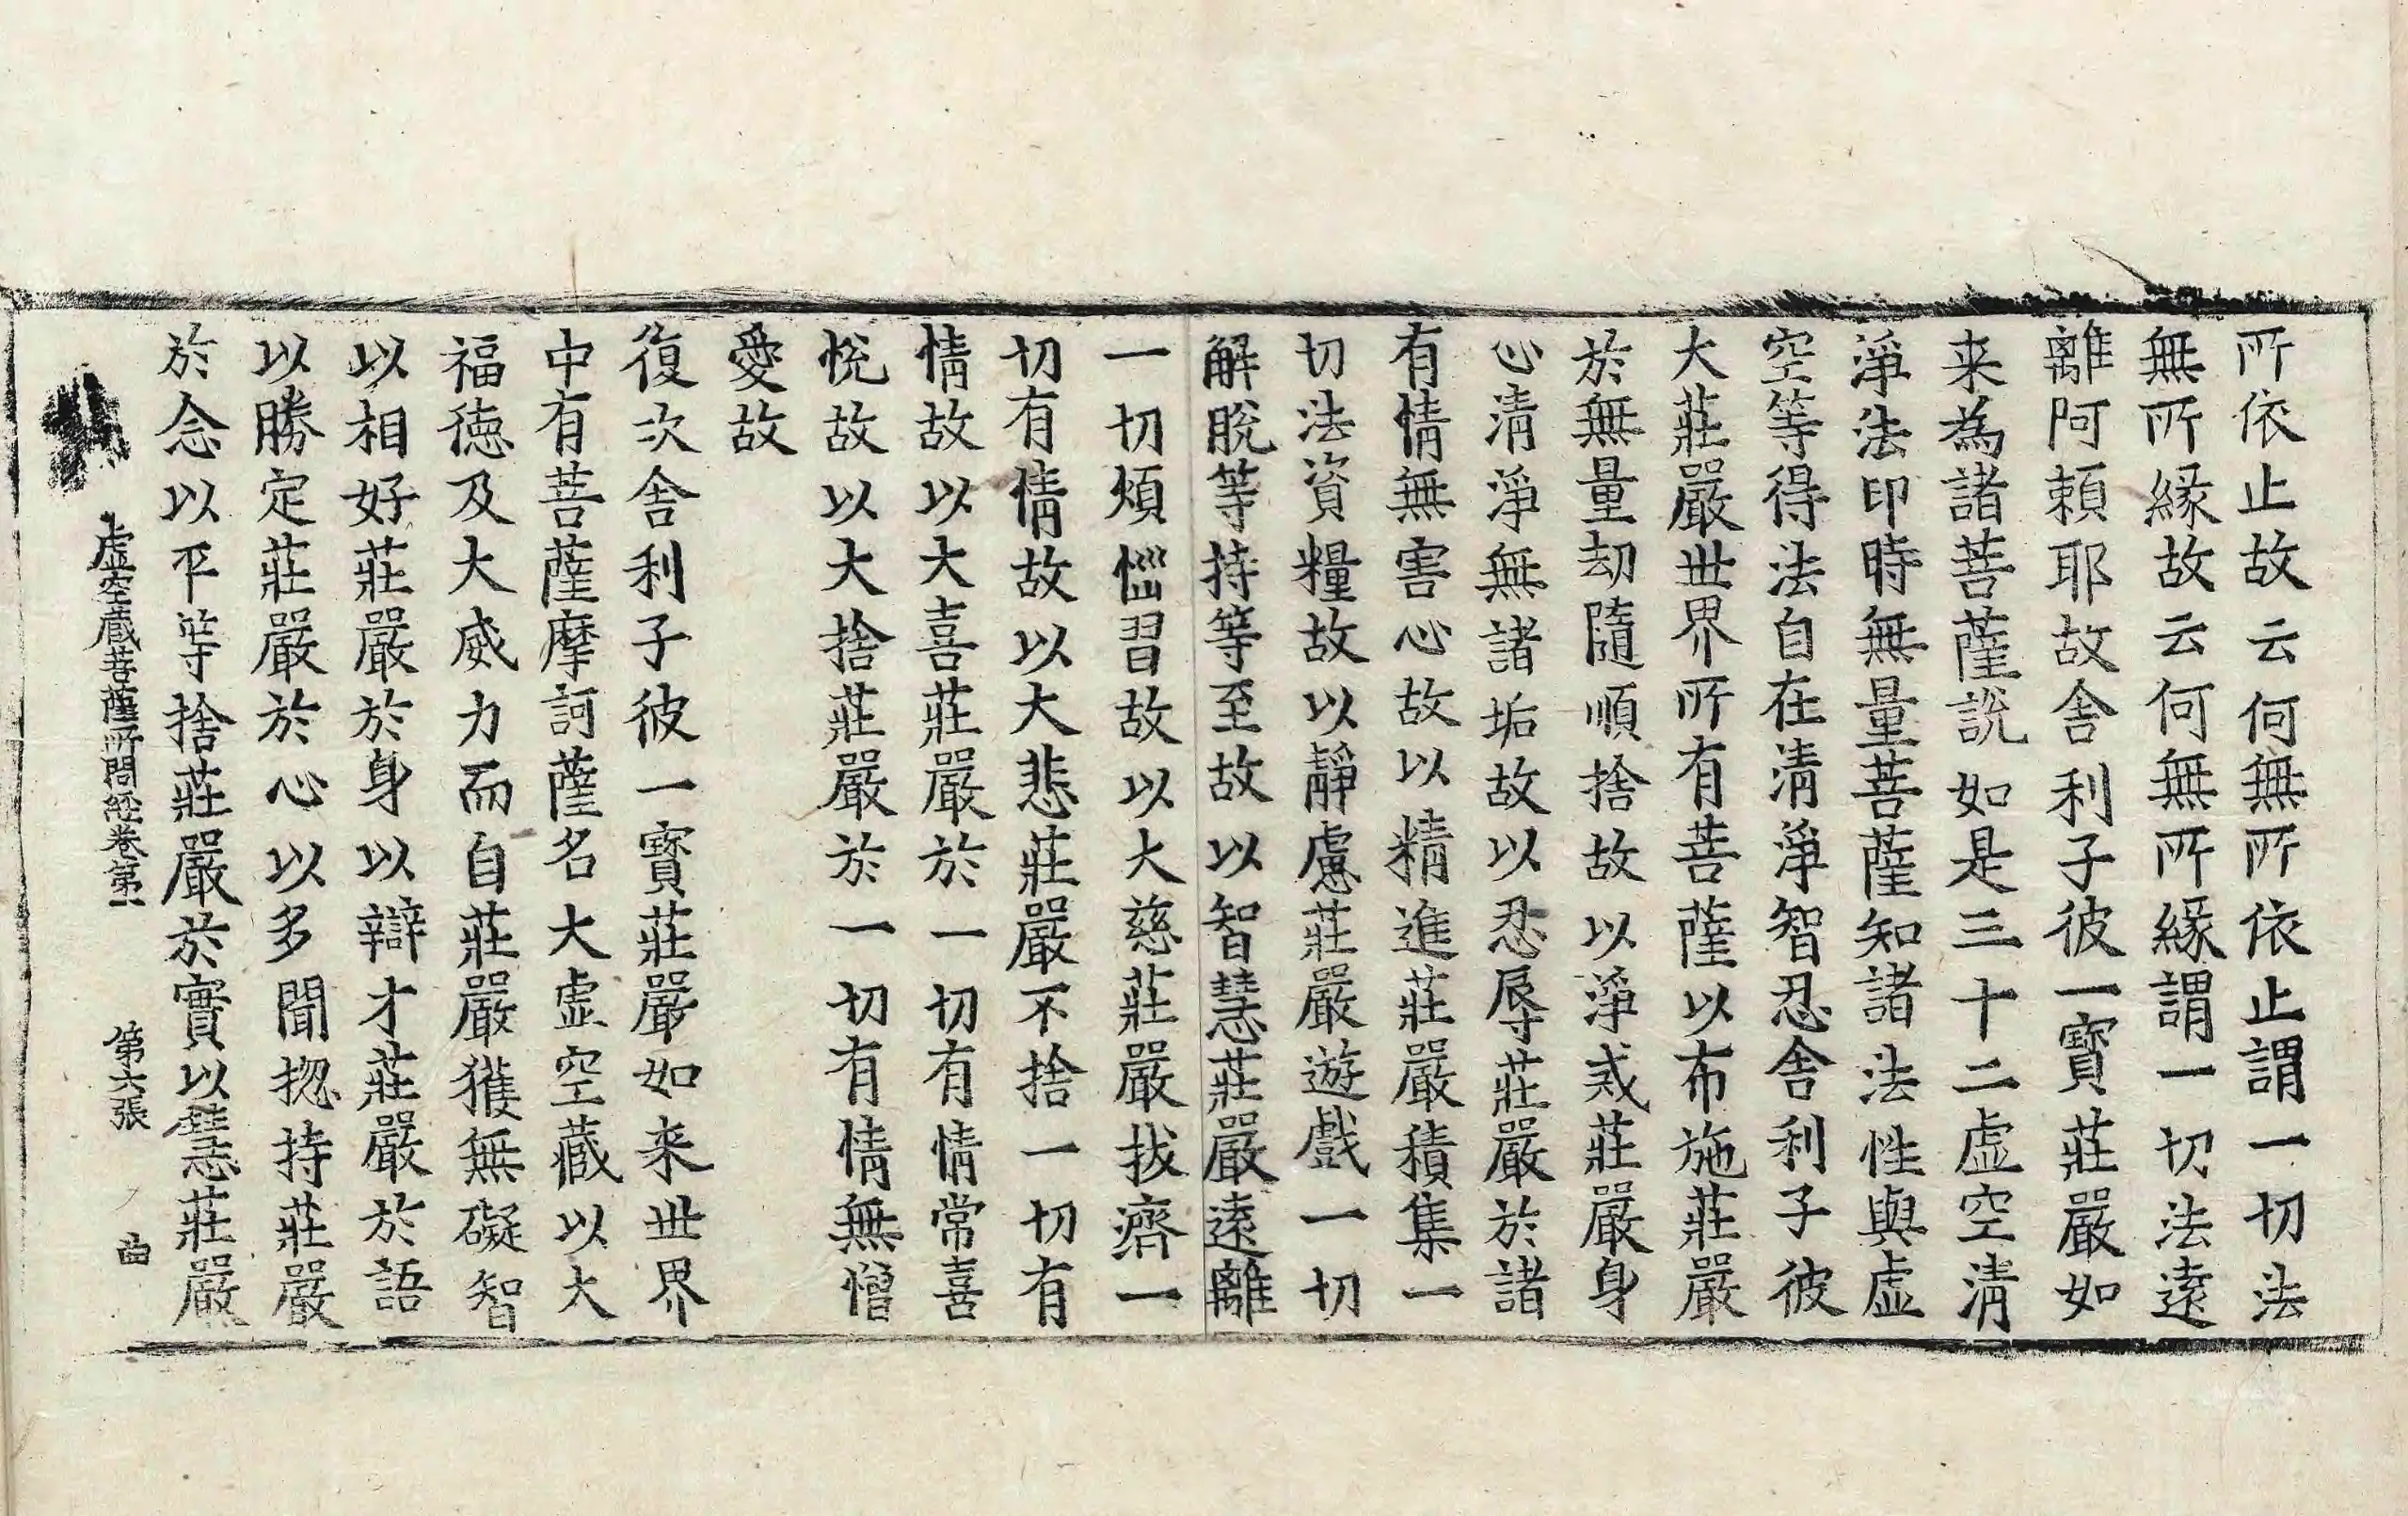 所依止故云何無所依止謂一切法
無所縁故云何無所縁謂一切法遠
離阿頼耶故舍利子彼一寶莊嚴如
来為諸菩薩說如是三十二虛空清
淨法印時無量菩薩知諸法性與虛
空等得法自在清淨智忍舍利子彼
大莊嚴世界所有菩薩以布施莊嚴
於無量劫隨順捨故以淨戒莊嚴身
心清淨無諸垢故以忍辱莊嚴於諸
有情無害心故以精進莊嚴積集一
切法資糧故以靜慮莊嚴遊戲一切
解脫等持等至故以智慧莊嚴遠離
一切煩惱習故以大慈莊嚴拔濟一
切有情故以大悲莊嚴不捨一切有
情故以大喜莊嚴於一切有情常喜
悅故以大捨莊嚴於一切有情無憎
愛故
復次舍利子彼一寶莊嚴如来世界
中有菩薩摩訶薩名大虛空藏以大
福德及大威力而自莊嚴獲無礙智
以相好莊嚴於身以辯才莊嚴於語
以勝定莊嚴於心以多聞揔持莊嚴
於念以平等捨莊嚴於實以慧莊嚴
虛空蔵菩薩所問經卷第一 第六張 曲